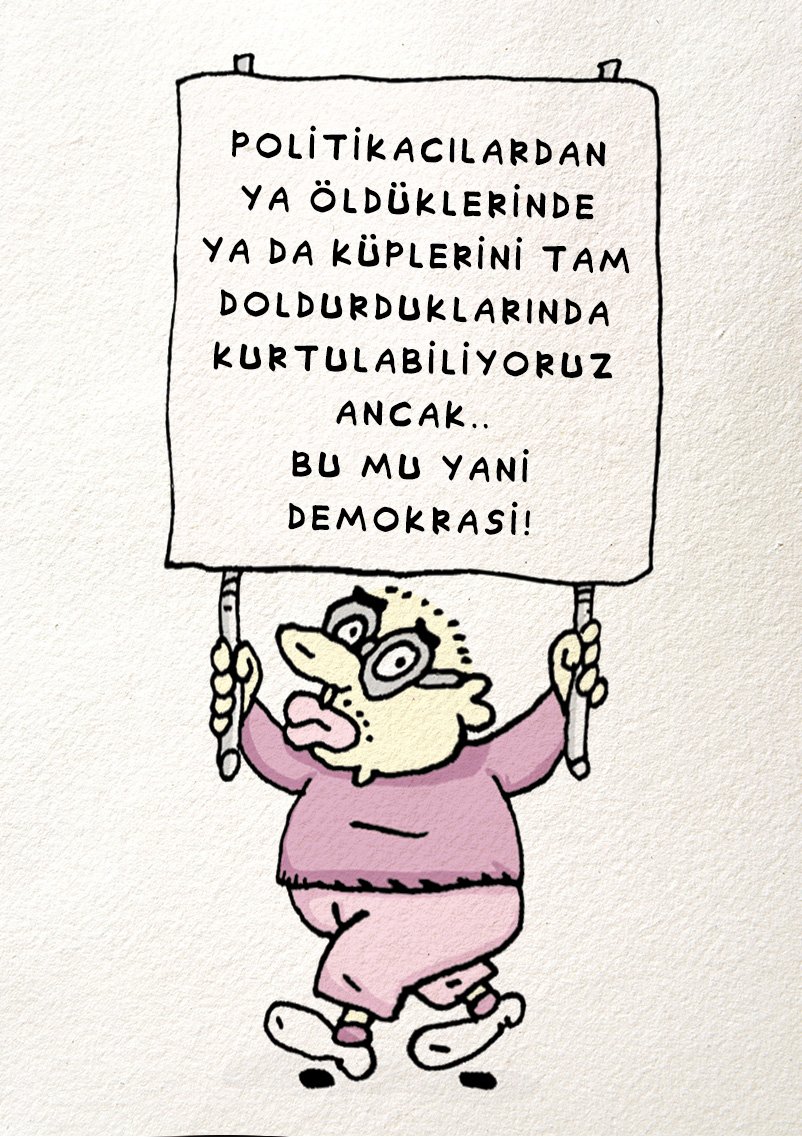 POLİTİKACILARDAN
YA ÖLDÜKLERİNDE
YA DA KÜPLERİNİ TAM
DOLDURDUKLARINDA
KURTULABİLİYORUZ
ANCAK..
BU MU YANİ
DEMOKRASİ!